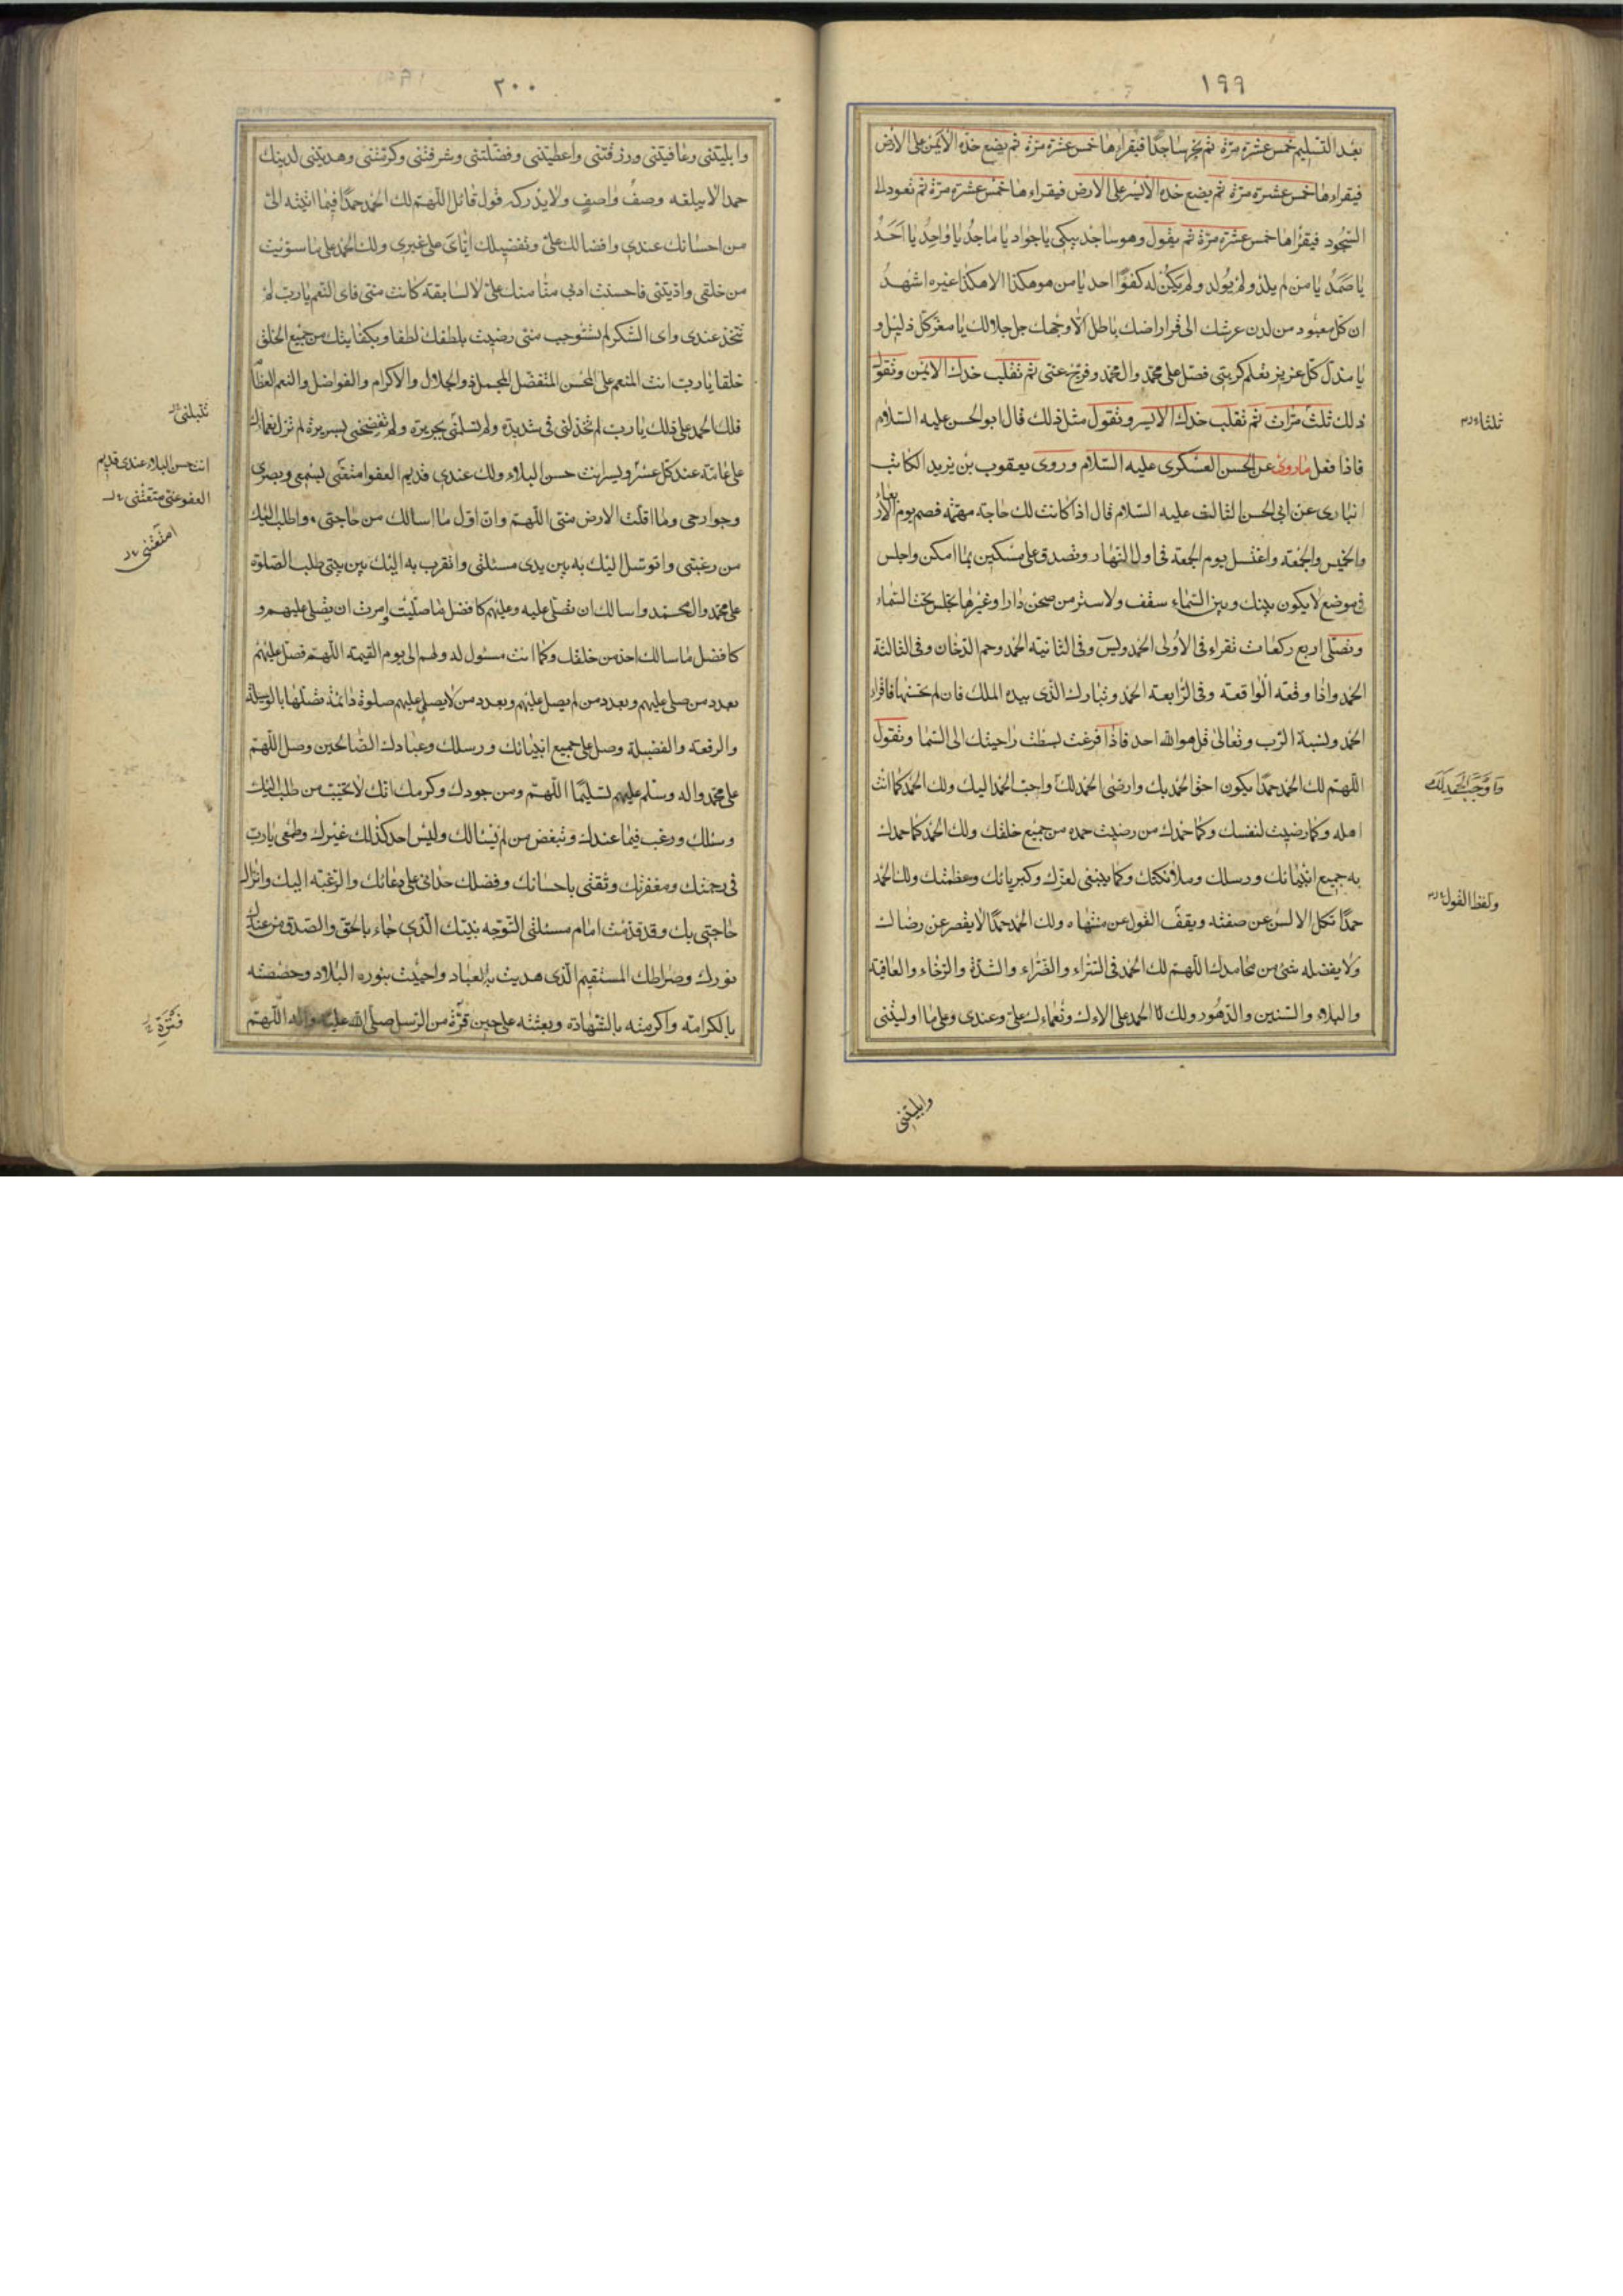 ١٩٩
بعد التسليم خمس عشرة مرّة ثم يخر ساجدًا فيقراءها خمس عشرة مرّة ثم يضع خدّه الأيمن على الأرض
فيقراءها خمس عشرة مرّة ثم يضع خدّه الأيسر على الارض فيقراءها خمس عشرة مرّة ثم تعود الى
السّجود فيقرأها خمس عشرة مرّة ثم يقول وهو ساجد يبكى يا جواد يا ماجدُ يا واحِدُ يا اَحَدُ
يا صَمَدُ يا من لم يلد ولم يُولد ولم يكن له كفوًا احد يا من هو هكذا الا هكذا غيره اشهدُ
ان كل معبود من لدن عرشك الى قرار ارضك باطل الّا وجهك جل جلالك يا معزّ كل ذليل و
يا مذلّ كلّ عزيز تعلم كربتى فصلّ على محمد وال محمد وفرّج عنّى ثم تقلب خدك الايمن وتقول
ذلك ثلثَ مرّات ثم تقلب خدك الايسر وتقول مثل ذلك قال ابو الحسن عليه السّلام
فاذا فعل ماروى عن الحسن العسكرى عليه السّلام وروى يعقوب بن يزيد الكاتب
انبارى عن ابى الحسن الثالث عليه السّلام قال اذا كانت لك حاجة مهمّة فصم يوم الاربعاء
والخميس والجمعة واغتسل يوم الجمعة فى اول النّهار وتصدق على مسكين بما امكن واجلس
فى موضع لا يكون بينك وبين السّماء سقف ولا ستر من صحن دار او غيرها تجلس تحت السّماء
وتصلّى اربع ركعات تقراء فى الأولى الحمد ويس وفى الثانية الحمد وحم الدّخان وفى الثالثة
الحمد واذا وقعة الواقعة وفى الرّابعة الحمد وتبارك الذّى بيده الملك فان لم تحسنها فاقراء
الحمد ونسبة الرّب وتعالى قل هو الله احد فاذا فرغت بسطت راحيتك الى السّما وتقول
اللّهم لك الحمد حمدًا يكون احق الحمد بك وارضى الحمد لك واحبّ الحمد اليك ولك الحمد كما انت
اهله وكما رضيت لنفسك وكما حمدك من رضيت حمده من جميع خلقك ولك الحمد كما حمدك
به جميع انبيائك ورسلك وملائكتك وكما ينبغى لعزّك وكبريائك وعظمتك ولك الحمد
حمدًا تكل الالسن عن صفته ويقف القول عن منتهاه ولك الحمد حمدًا لا يقصر عن رضاك
ولا يفضله شئ من محامدك اللّهم لك الحمد فى السّرّاء والضّرّاء والشدّة والرّخاء والعافية
والبلاء والسّنين والدّهور ولك الحمد على الاءك ونعماءك علىّ وعندى وعلى ما اوليتنى
ثلثا
فاوجب الحمد لك
ولفظ القول
وابليتنى
٢٠٠
وابليتنى وعافيتنى ورزقتنى واعطيتنى وفضّلتنى وشرفتنى وكرّمتنى وهديتنى لدينك
حمدا لا يبلغه وصفُ واصفٍ ولا يدركه قول قائل اللّهم لك الحمد حمدًا فيما اتيته الىّ
من احسانك عندى وافضالك علىّ وتفضيلك ايّاى على غيرى ولك الحمد على ما سوّيت
من خلقى وادّبتنى فاحسنت ادبى منّا منك علىّ لا لسابقة كانت منّى فاى النعم يا ربّ لم
تتخذ عندى واى الشكر لم تستوجب منّى رضيت بلطفك لطفا وبكفايتك من جميع الخلق
خلقا يا رب انت المنعم على المحسن المتفضّل المجمل ذو الجلال والاكرام والفواضل والنعم العظام
فلك الحمد على ذلك يا رب لم تخذلنى فى شديدة ولم تسلمنى بجريرة ولم تفضحنى بسريرة لم تزل نعماءك
على عامّة عند كل عسر ويسر انت حسن البلاء ولك عندى قديم العفوا متعنى بسمعى وبصرى
وجوارحى وما اقلّت الارض منّى اللّهم وانّ اول ما اسالك من حاجتى واطلب اليك
من رغبتى واتوسّل اليك به بين يدى مسئلتى واتقرب به اليك بين يدى طلب الصّلوة
على محمد وال محمد واسالك ان تصلّى عليه وعليهم كافضل ما صلّيت امرت ان يصلى عليهم و
كافضل ما سالك احد من خلقك وكما انت مسئول له ولهم الى يوم القيمة اللّهم فصلّ عليهم
بعدد من صلى عليهم وبعدد من لم يصل عليهم وبعدد من لا يصلى عليهم صلوة دائمة تصلها بالوسيلة
والرفعة والفضيلة وصل على جميع انبيائك ورسلك وعبادك الصّالحين وصل اللّهم
على محمد واله وسلّم عليهم تسليمًا اللّهم ومن جودك وكرمك انّك لا تخيّب من طلب اليك
وسئلك ورغب فيما عندك وتبغض من لم يسالك وليس احد كذلك غيرك وطمعى يا رب
فى رحمتك ومغفرتك وثقتى باحسانك وفضلك حدانى على دعائك والرّغبة اليك وانزال
حاجتى بك وقد قدّمت امام مسئلتى التّوجه بنبيّك الّذى جاء بالحق والصّدق من عندك
نورك وصراطك المستقيم الّذى هديت به العباد واحييت بنوره البلاد وخصصته
بالكرامة واكرمته بالشّهادة وبعثته على حين فترة من الرّسل صلّى الله عليه واله اللّهم
تبلنى
انت حسن البلاء عندى قديم
العفو عنّى متعتنى
امتعتنى
فَتْرَةٍ